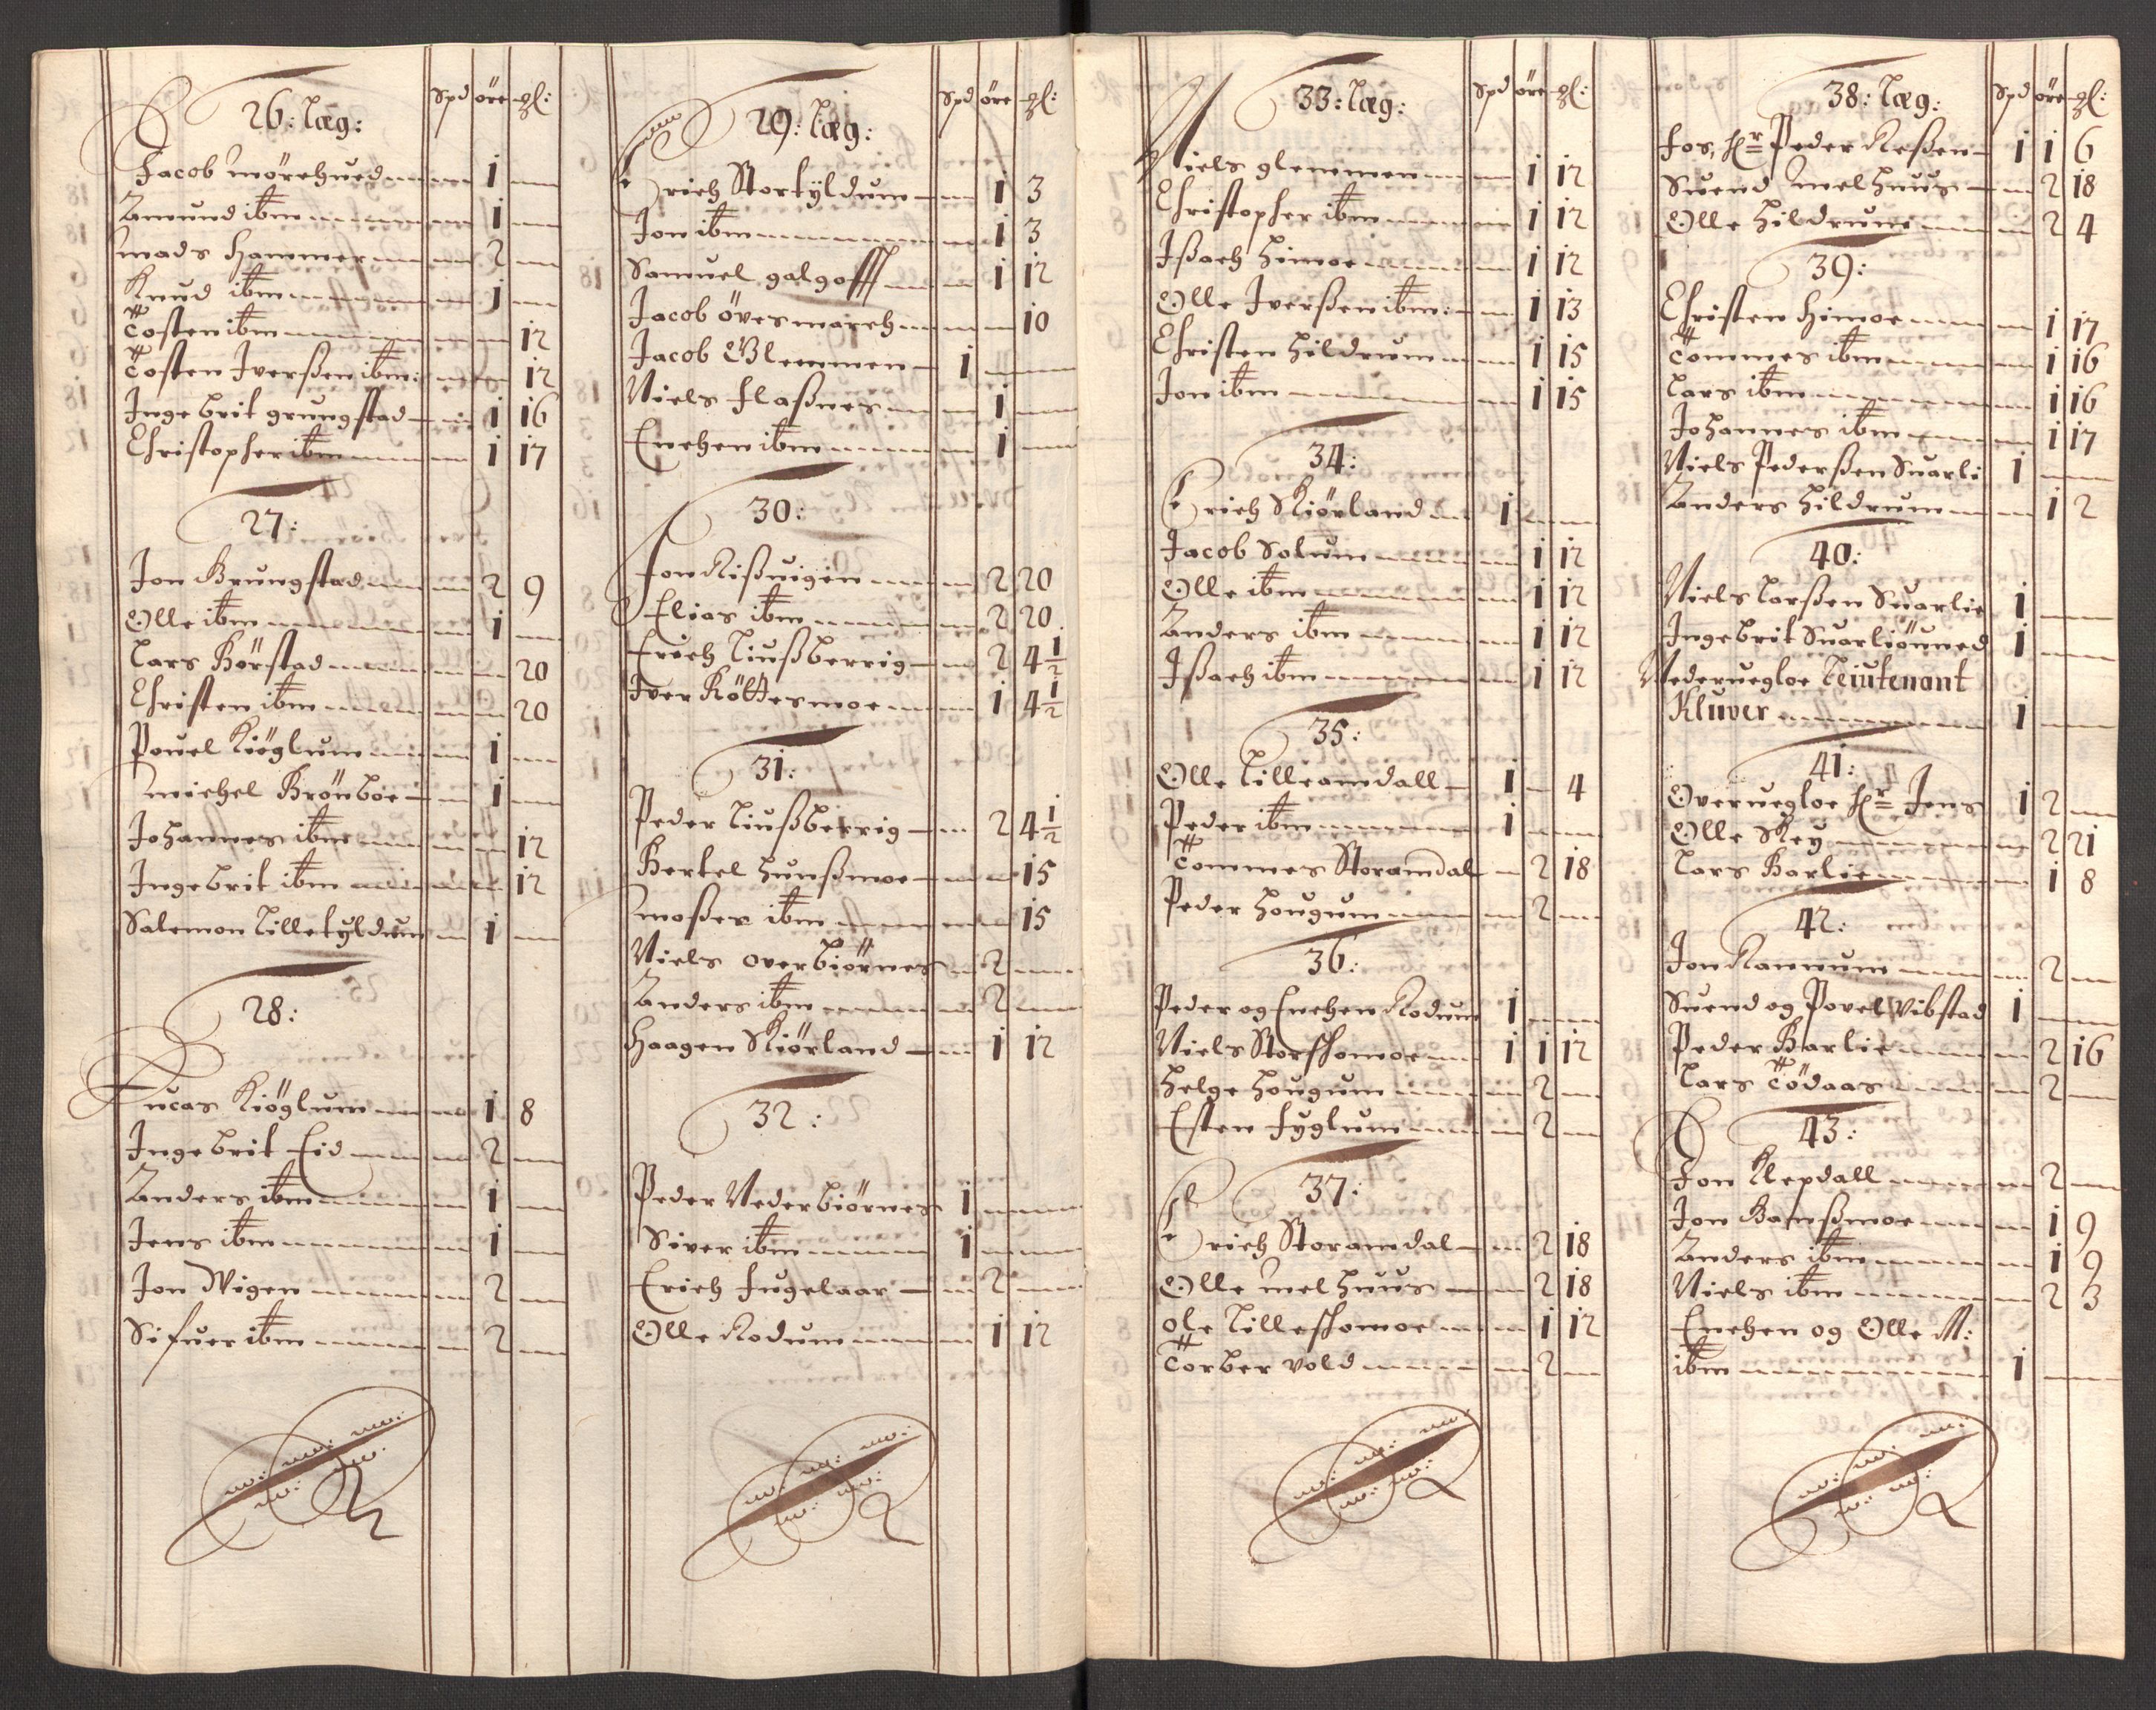 26: Læg: Spd öre ql:
Jacob Mörehued 1
Amund ibm 1
Mads Hammer 2
Knud ibm 1
Tosten ibm 12
Tosten Iverßen ibm: 12
Ingebrit grungstad 1 16
Christopher ibm 1 17
27:
Jon Grungstad 2 9
Olle ibm 1
Lars Börstad 20
Christen ibm 20
Povel Kiöglum 1
Michel Brönboe 1
Johannes ibm 12
Ingebrit ibm 12
Salomon Lilletyldum 1
28:
Lucas Kiöglum 1 8
Ingebrit Eid 2
Anders ibm 1
Jens ibm 1
Jon Wigen 2
Sifuer ibm 2
29: Læg: Spd öre ql:
Erich Stortyldum 1 3
Jon ibm 1 3
Samuel galgofft 1 12
Jacob övesmarch 10
Jacob Glemmen 1
Niels flaßnes 1
Enchen ibm 1
30:
Jon Rißuigen 2 20
Elias ibm 2 20
Erich Liußberrig 2 4½
Iver Röttesmoe 1 4½
31:
Peder Liußberrig 2 4½
Bertel Hunßmoe 15
Moßes ibm 15
Niels overbiörnes 2
Anders ibm 2
Haagen Skiörland 1 12
32:
Peder Nederbiörnes 1
Siver ibm 1
Erich fugelaar 2
Olle Rodum 1 12
33: Læg: Spd öre ql:
Niels glemmen 1 12
Christopher ibm 1 12
Ißach Himoe 1 12
Olle Iverßen ibm: 1 13
Christen Hildrum 1 15
Jon ibm 1 15
34:
Erich Skiörland 1
Jacob Solum 1 12
Olle ibm 1 12
Anders ibm 1 12
Ißach ibm 1 12
35:
Olle Lilleamdall 1 4
Peder ibm 1
Tommes Storamdal 2 18
Peder Hougum 2
36:
Peder og Enchen Rodum 1
Niels Storshomoe 1 1 12
Helge Hougum 2
Esten fyglum 2
37:
Erich Storamdal 2 18
Olle Melhuus 2 18
Ole Lilleshomoe 1 12
Torber vold 2
38: Læg: Spd öre ql:
fos, Hr Peder Reßen 1 1 6
Suend Melhuus 2 18
Olle Hildrum 2 4
39:
Christen Himoe 1 17
Tommes ibm 1 16
Lars ibm 1 16
Johannes ibm 1 17
Niels Pederßen Suarli 1
Anders Hildrum 1 2
40:
Niels Larßen Suarlie 1
Ingebrit Suarliönned 1
Nederuegloe Leiutenant
Klüver 1
41:
Overuegloe Hr Jens 1 2
Olle Skey 2 21
Lars Barlie 1 8
42:
Jon Rannum 2
Suend og Povel Vibstad 1
Peder Barlie 2 16
Lars Tödaas 2
43:
Jon Klepdall 2
Jon Hanßmoe 1 9
Anders ibm 1 9
Niels ibm 2 3
Enchen og Olle M:
ibm 1